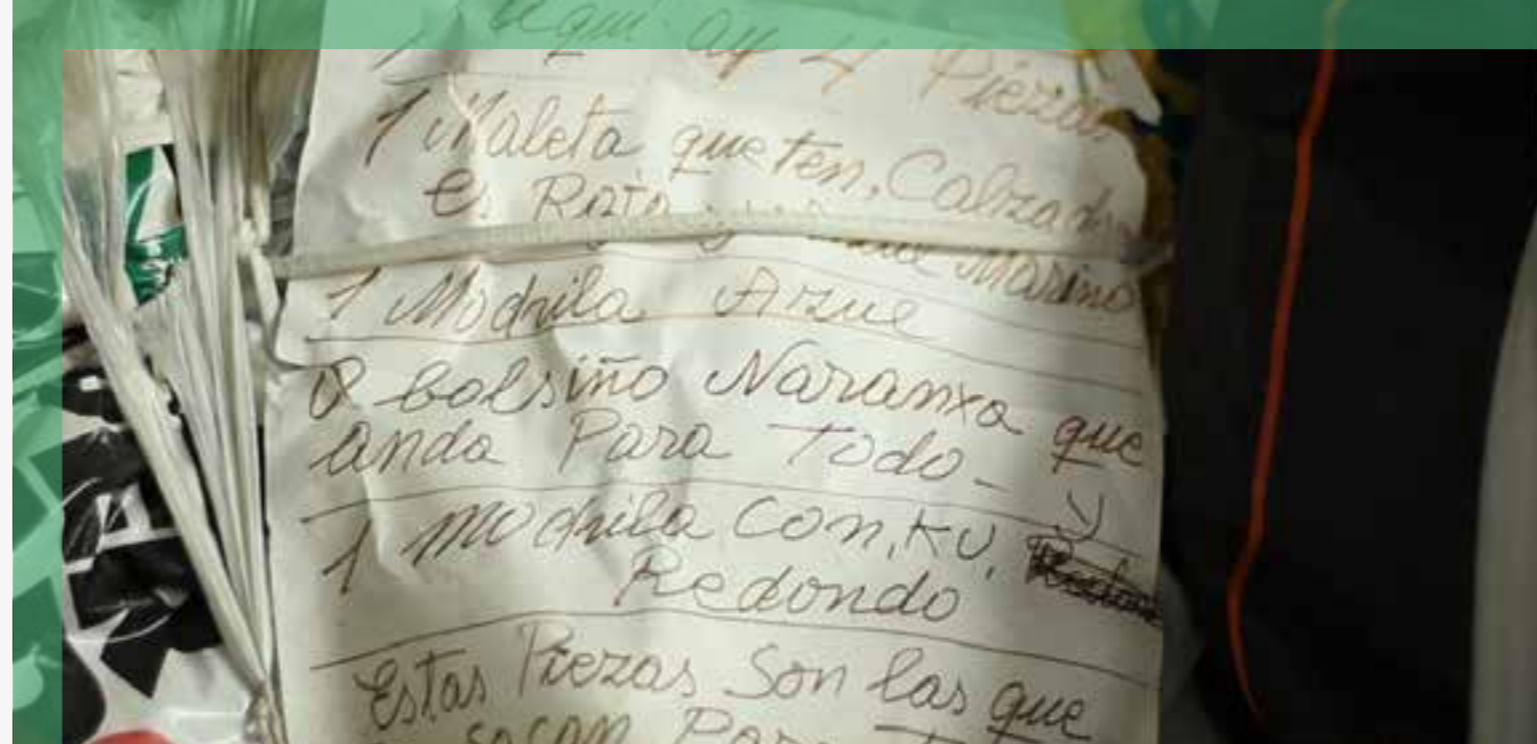 aqui ay 4 Piezas
1 Maleta que ten, Calzado
e. Roja
Marino
1 Modrila Azue
bolsiño Naranxa que
anda Para Todo -
1 modrila Con, KU,
Redondo
Estas Piezas Son las que
sacan Para